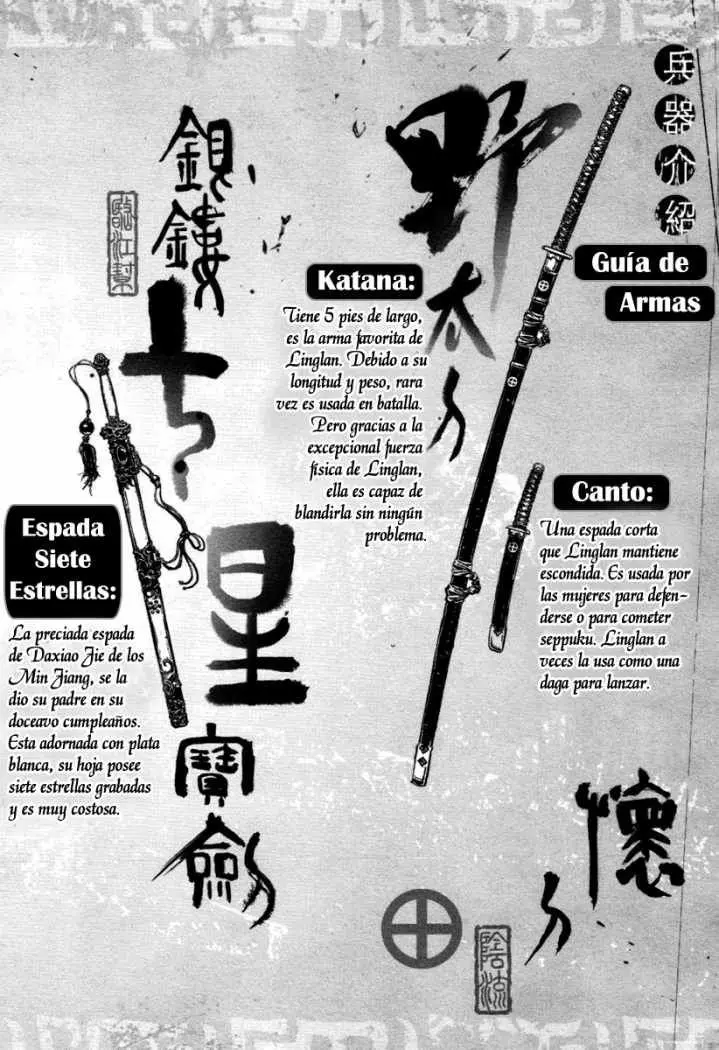 兵器介紹
Guía de
Armas
野太刀
Katana:
Tiene 5 pies de largo,
es la arma favorita de
Linglan. Debido a su
longitud y peso, rara
vez es usada en batalla.
Pero gracias a la
excepcional fuerza
física de Linglan,
ella es capaz de
blandirla sin ningún
problema.
Canto:
Una espada corta
que Linglan mantiene
escondida. Es usada por
las mujeres para defen-
derse o para cometer
seppuku. Linglan a
veces la usa como una
daga para lanzar.
懷刀
陰流
銀鏤七星寶劍
臨江幫
Espada
Siete
Estrellas:
La preciada espada
de Daxiao Jie de los
Min Jiang, se la
dio su padre en su
doceavo cumpleaños.
Esta adornada con plata
blanca, su hoja posee
siete estrellas grabadas
y es muy costosa.